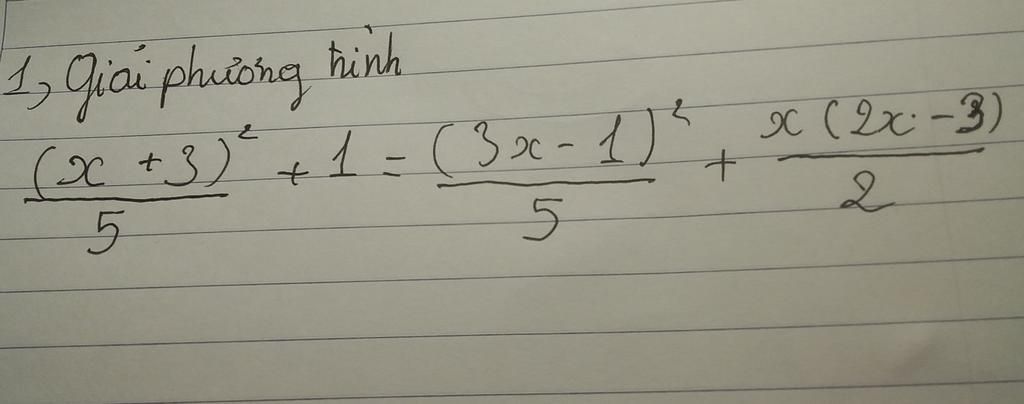 1, Giải phương trình
(x + 3)² / 5 + 1 = (3x - 1)² / 5 + x(2x - 3) / 2